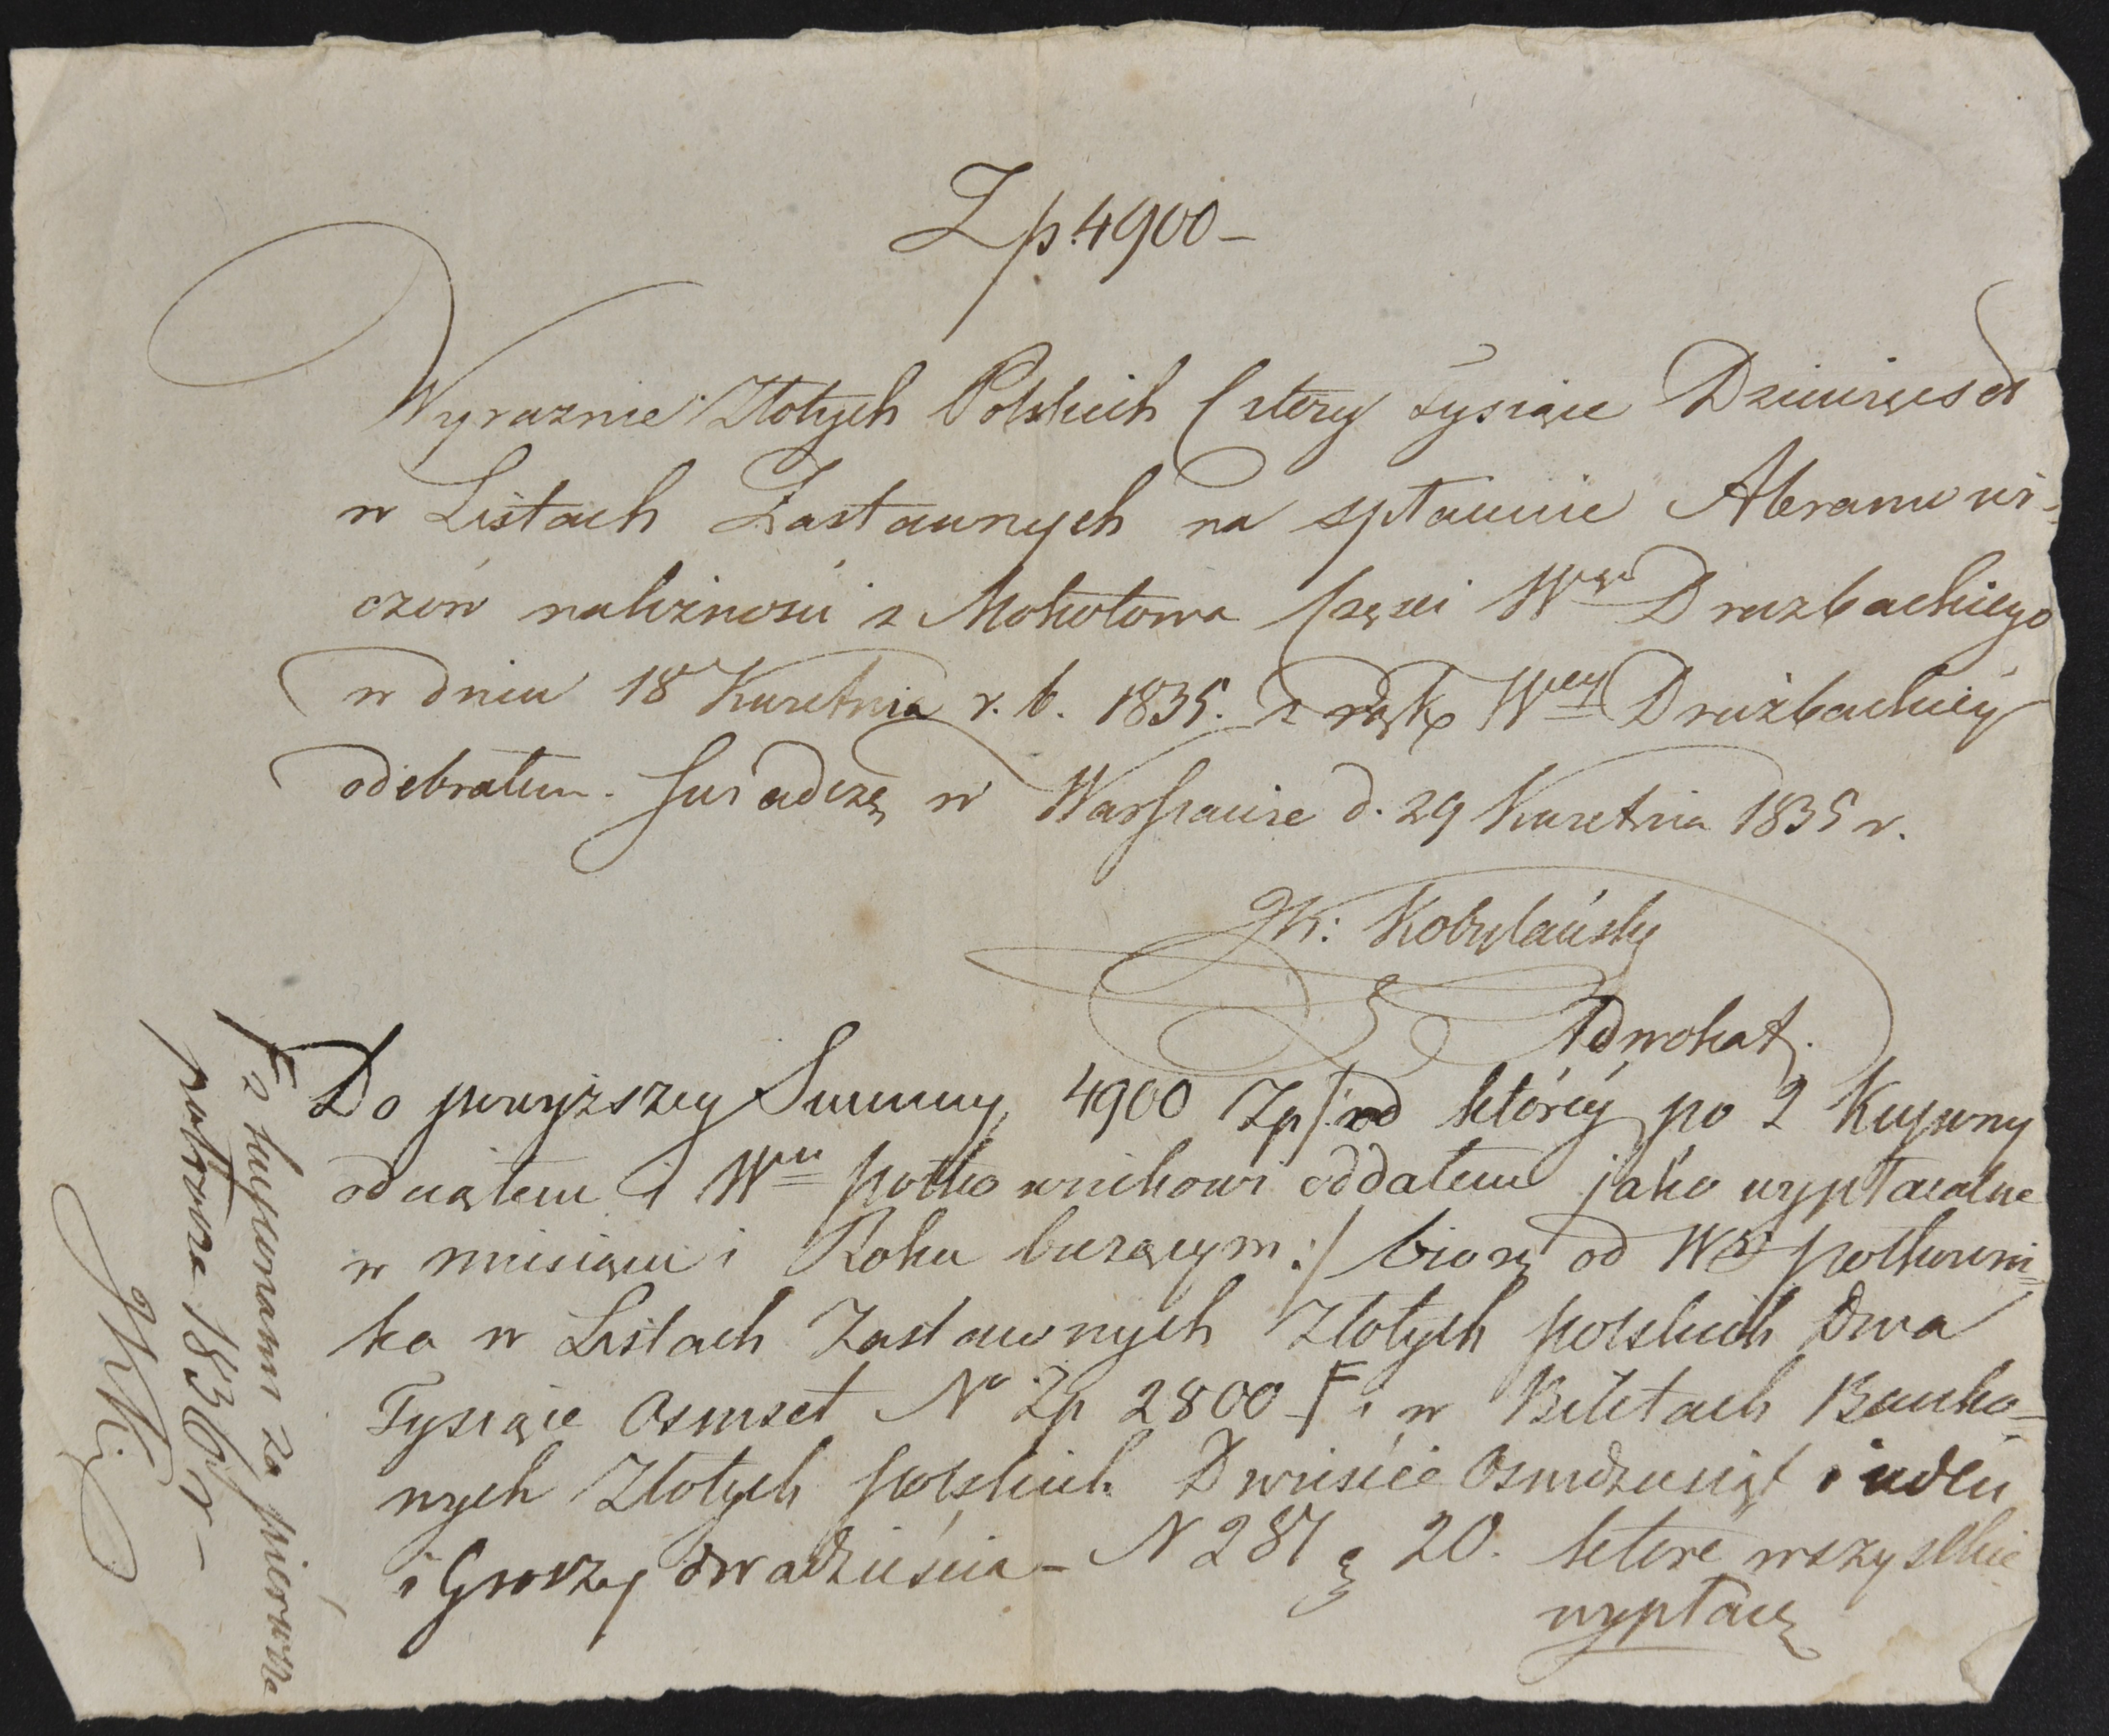 Zp. 4900 –
Wyraznie Złotych Polskich Cztery Tysiące Dziewięcset
w Listach Zastawnych na spłacenie Abramowi-
czów należności z Mokotowa Części Wgo Druzbackiego
w dniu 18 Kwietnia r. b. 1835. z rąk Wey Drużbackiéy
odebrałem. Swiadczę w Warszawie d. 29 Kwietnia 1835 r.
JK: Kobylański
Adwokat.
Do powyższey Summy 4900 Zp /: od któréy po 2 Kupony
odciąłem i Wu połkownikowi oddałem jako wypłacalne
w miesiącu i Roku bieżącym :/ biorę od W połkowni=
ka w Listach Zastawnych Złotych polskich Dwa
Tysiące Osmset No Zp 2800 F i w Biletach Banko=
nych Złotych polskich Dwieście Osmdziesiąt i ieden
i Groszy dwadzieścia – N 281 g 20. które wszystkie
wypłacę
F z kuponami za pierwsze
półrocze 1836 r –
JK: